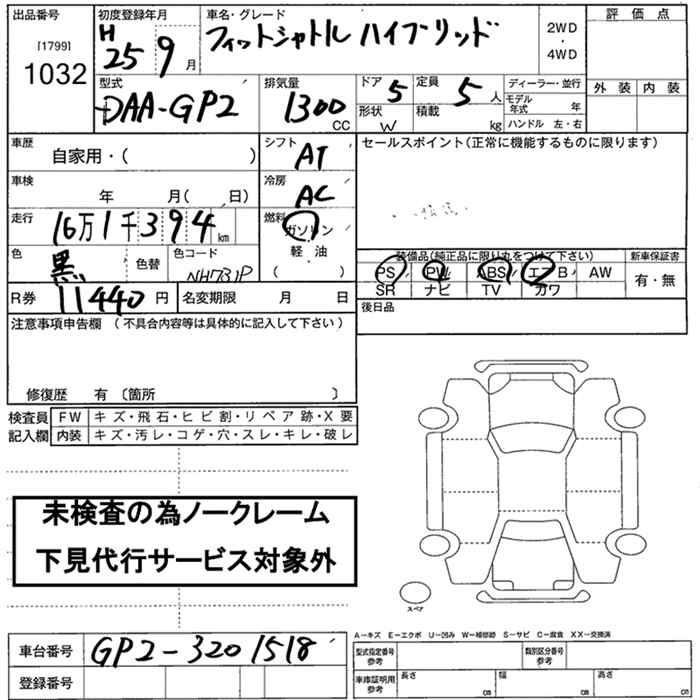 出品番号 初度登録年月 車名・グレード 評価点
[1799] H フィットシャトル ハイブリッド 2WD
1032 25 9月 ・ 4WD
型式 排気量 ドア 5 定員 5人 ディーラー・並行 外装 内装
DAA-GP2 1300 CC 形状 W 積載 kg モデル年式 年
ハンドル 左・右
車歴 自家用・( ) シフト AT セールスポイント(正常に機能するものに限ります)
車検 年 月( 日) 冷房 AC
走行 16万1千394km 燃料 ガソリン
色 黒 色替 色コード NH731P 軽・油 ( )
装備品(純正品に限り丸をつけて下さい) 新車保証書
PS PW ABS エアB AW 有・無
SR ナビ TV カワ
R券 11440円 名変期限 月 日 後日品
注意事項申告欄 (不具合内容等は具体的に記入して下さい)
修復歴 有 〔箇所 〕
検査員 FW キズ・飛石・ヒビ割・リペア跡・X要
記入欄 内装 キズ・汚レ・コゲ・穴・スレ・キレ・破レ
未検査の為ノークレーム
下見代行サービス対象外
スペア
A−キズ E−エクボ U−凹み W−補修跡 S−サビ C−腐食 XX−交換済
車台番号 GP2-3201518 型式指定番号 参考 類別区分番号 参考
登録番号 車庫証明用 参考 長さ cm 幅 cm 高さ cm